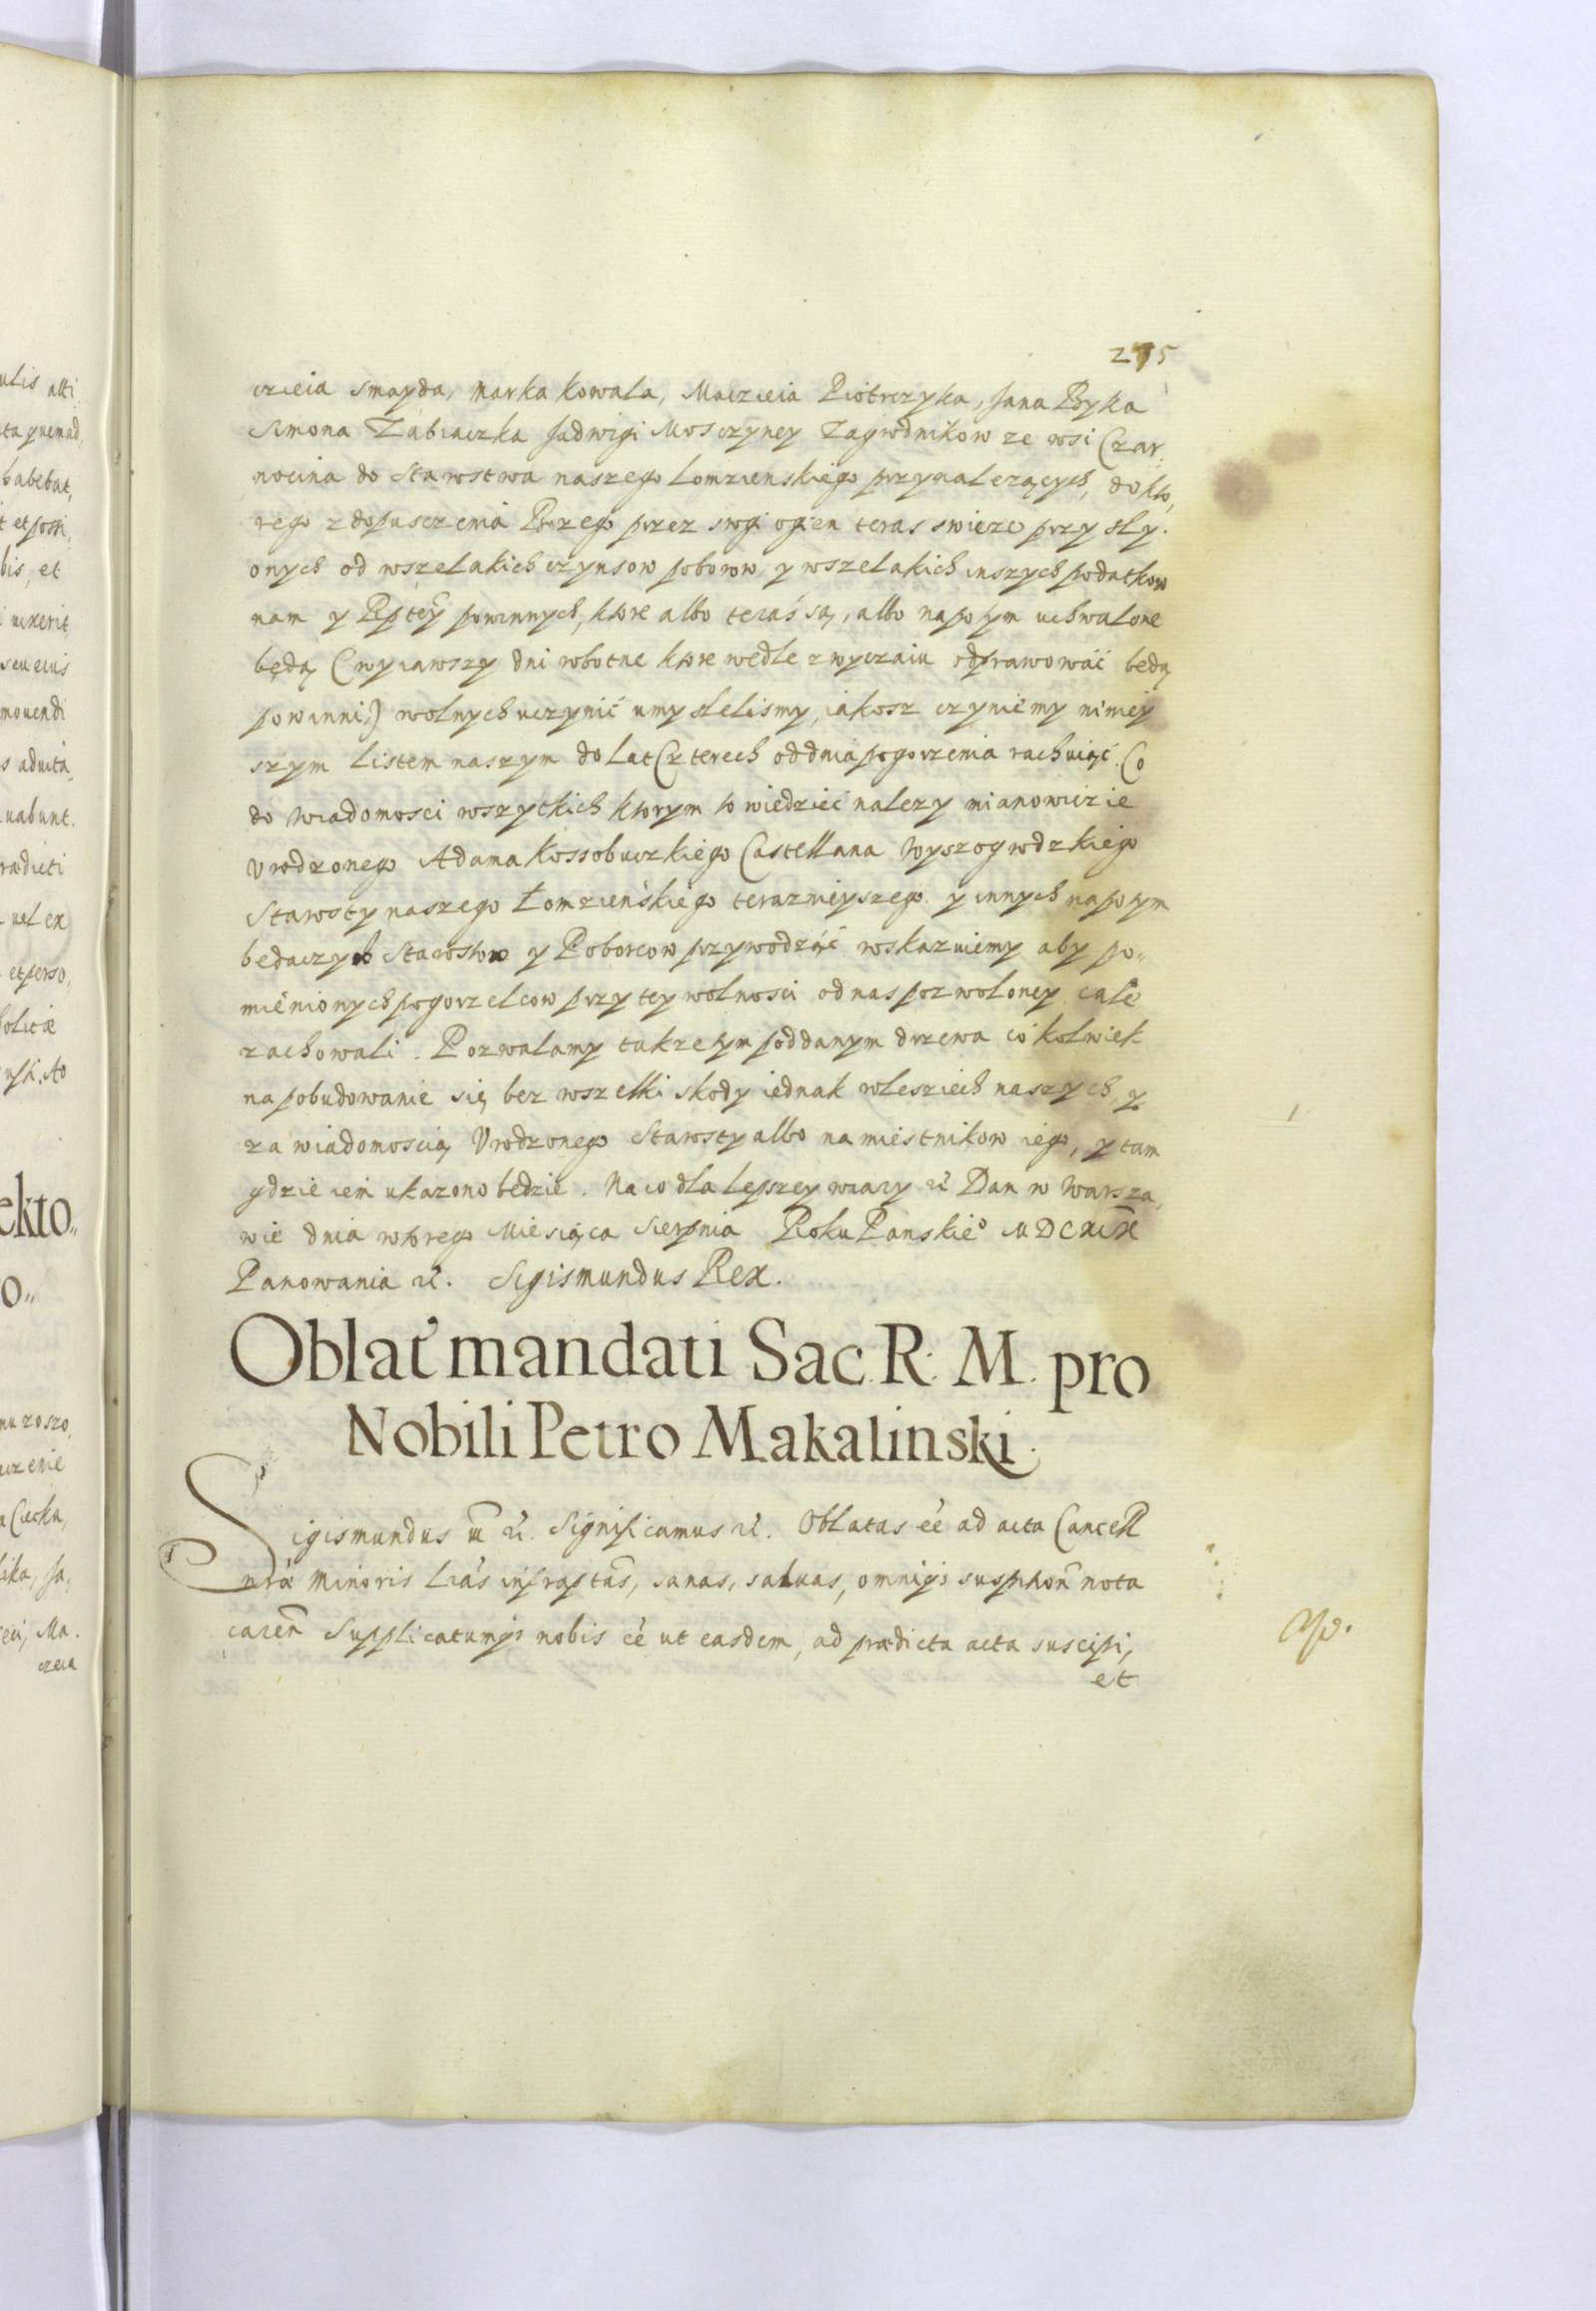 275
czieia Smayda, Marka Kowala, Maczieia Piotrczyka, Jana Byka
Simona Zabiaczka Jadwigi Mosczyney Zagrodnikow ze wsi Czar,
nocina do Starostwa naszego Lomzienskiego przynalezących, do kto,
rego z dopusczenia Bozego przez srogi ogien teras swiezo przyszly.
onych od wszelakich czynsow poborow, y wszelakich inszych podatkow
nam y Rptey powinnych, ktore albo teraś są, albo napotym uchwalone
będą (wyiawszy dni robotne ktore wedle zwyczaiu odprawowáć będą
powinni,) wolnych uczynić umyslelismy, iakosz czyniemy niniey
szym listem naszym do lat Czterech od dnia pogorzenia rachuiąć. Co
do wiadomosci wszytkich ktorym to wiedzieć nalezy mianowiczie
Urodzonego Adama Kossobuczkiego Castellana Wyszogrodzkiego
Starosty naszego Łomzieńskiego teraznieyszego. y innych napotym
bedaczych Starostow y Poborcow przywodząć roskazuiemy aby po„
mienionych pogorzelcow przy tey wolnosci od nas pozwoloney cale
zachowali. Pozwalamy takze tym poddanym drzewa cokolwiek
na pobudowanie się bez wszelki skody iednak w lesziech naszych y
za wiadomoscią Urodzonego Starosty albo namiestnikow iego, y tam
gdzie iem ukazono bedzie. Na co dla lepszey wiary etc Dan w Warsza,
wie dnia wtorego Miesiąca Sierpnia Roku Panskieo MDCXIX
Panowania etc. Sigismundus Rex.
Oblat' mandati Sac. R. M. pro
Nobili Petro Makalinski.
Sigismundus III etc. Significamus etc. Oblatas eē ad acta Cancell
nrae Minoris Lrās infraptās, sanas, saluas, omniqȝ suspitionē nota
caren̄ Supplicatumqȝ nobis eē ut easdem, ad praedicta acta suscipi,
et